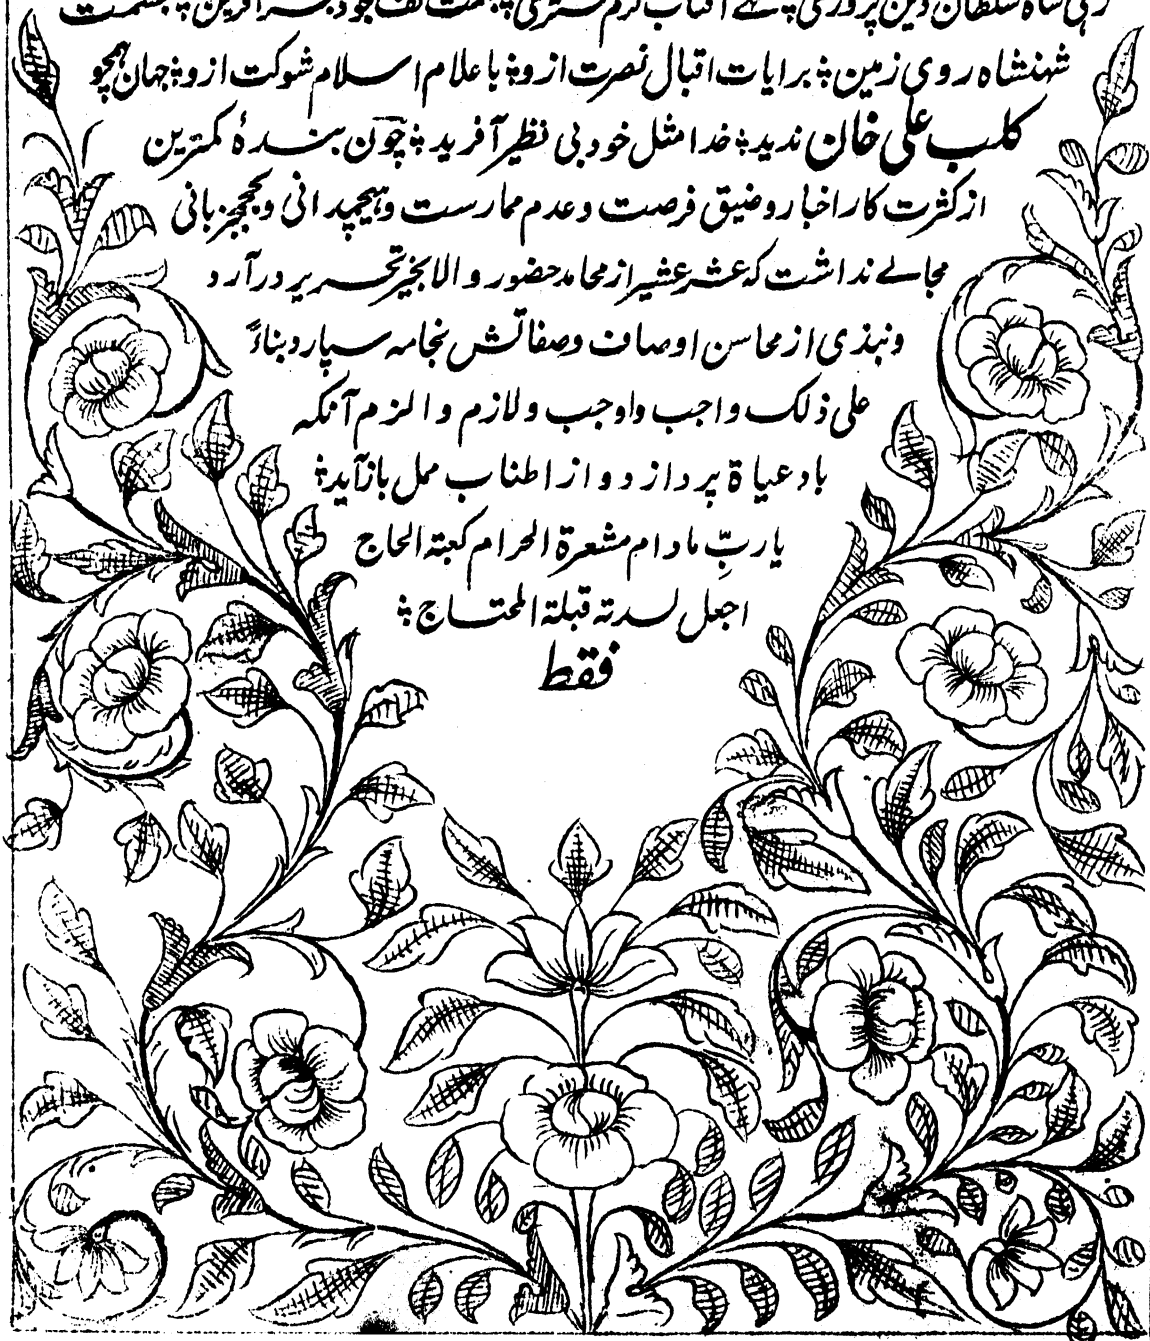 زہی شاہ سلطان دین پروری ؛ زہے آفتاب کرم گستری ؛
شہنشاہ روی زمین ؛ برایات اقبال نصرت ازو ؛ باعلام اسلام شوکت ازو ؛ جہان ہمچو
کلب علی خان ندید ؛ خدا مثل خود بی نظیر آفرید ؛ چون بندۂ کمترین
از کثرت کار اخبار و ضیق فرصت و عدم ممارست و ہیچمدانی و کجمج زبانی
مجالے نداشت کہ عشر عشیر از محامد حضور والا بخیر تحریر در آرد
و نبذی از محاسن اوصاف و صفاتش بخامہ سپارد بناءً
علی ذلک واجب و اوجب و لازم و الزم آنکہ
بادعیاۃ پردازد و از اطناب ممل باز آید ؛
یا ربِّ مادام مشعرۃ الحرام کعبتہ الحاج
اجعل لسدتہ قبلۃ المحتاج ؛
فقط